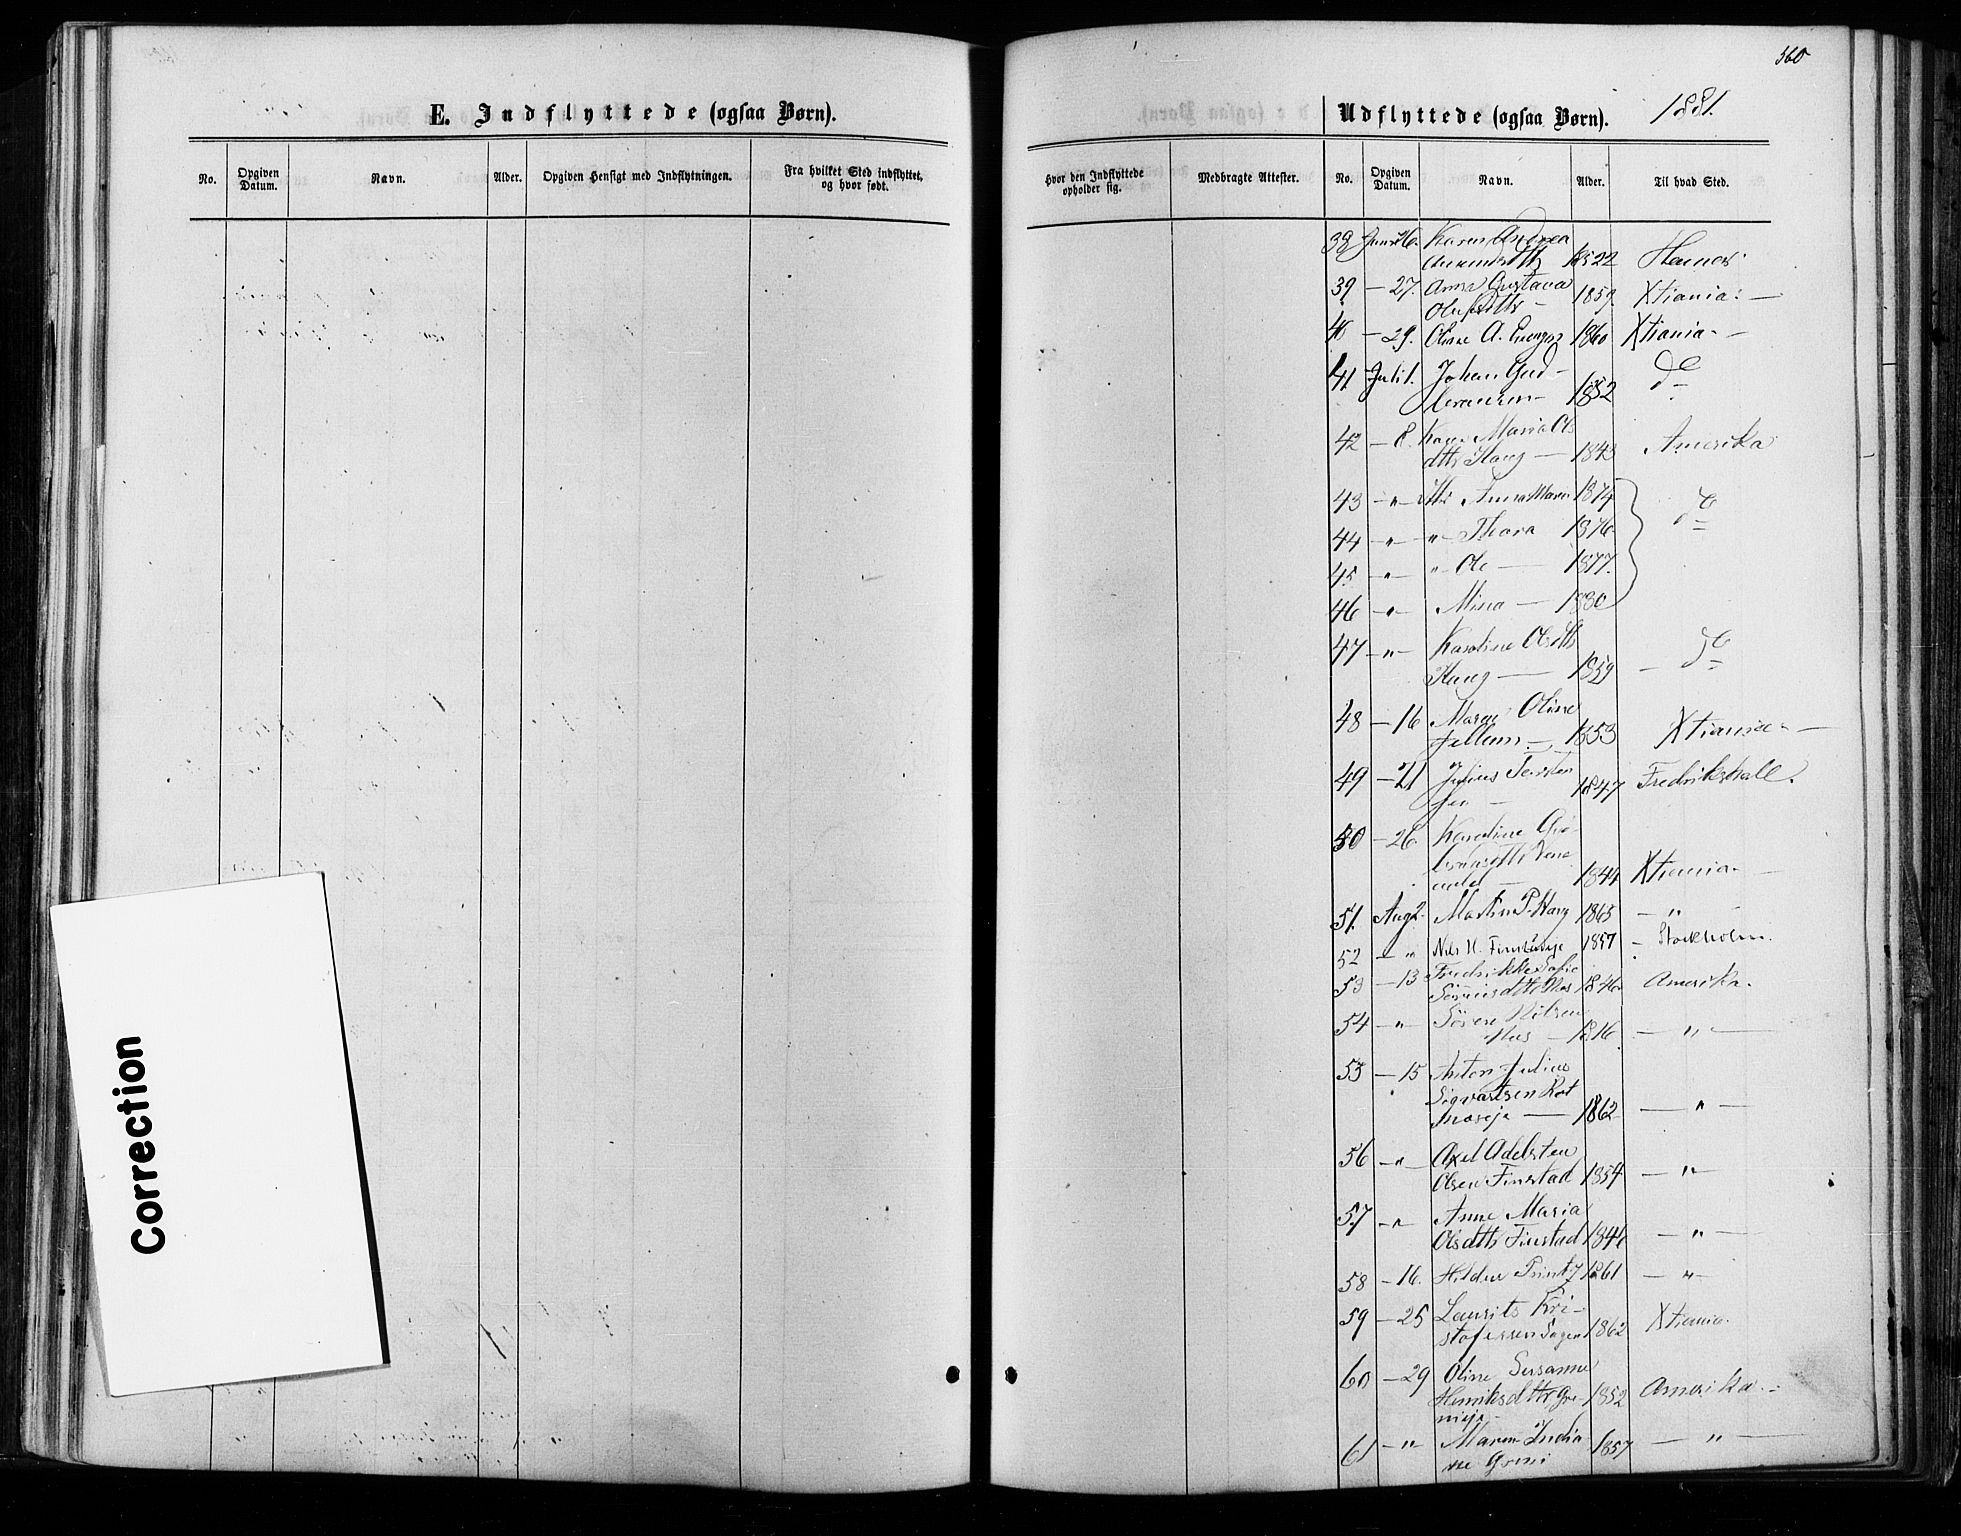 560
E. Indflyttede (ogsaa Børn).
Udflyttede (ogsaa Børn). 1881.
No. Opgiven Datum. Navn. Alder. Opgiven Hensigt med Indflytningen. Fra hvilket Sted indflyttet, og hvor født.
Hvor den Indflyttede opholder sig. Medbragte Attester. No. Opgiven Datum. Navn. Alder. Til hvad Sted.
38 Juni 26. Karen Andrea
1852 Hamar
39 — 27. Anna Gustava
1859 Xtiania. —
40 — 29. Oline A. 1860 Xtiania. —
41 Juli 1. Johan Gud-
brandsen — 1852 do
42 — 8. Karen Maria Ols
dttr Haug — 1843 Amerika
43 — " — Anna Marie 1874
44 — " — " Thora 1876 do
45 — " — " Ole — 1877
46 — " — Mina — 1880
47 — " — Karoline Olsdttr
Haug — 1859 — do
48 — 16 Maren Oline
1853 Xtiania. —
49 — 21 Julius Torsten
sen — 1847 Fredrikshall.
50 — 26 Karoline
1844 Xtiania. —
51. Aug 2. Martin P. Haug 1863 — " —
52 — " Nils H. 1857 — Stockholm.
53 — 13 Fredrikke Sofie
Sörensdttr Mos 1846 Amerika.
54 — " — Sören Nilsen
Moss — 1816 — " —
55 — 15 Anton Julius
Sigvartsen Rot
næseje — 1862 — " —
56 — " — Axel Adelsten
Olsen Finstad 1854 — " —
57 — " Anne Maria
Olsdttr Finstad 1846 — " —
58 — 16. Hildur Printz 1861 — " —
59 — 25 Laurits Kri-
stofersen Sagen 1862 Xtiania.
60 — 29 Oline Susanne
Henriksdttr Gre-
nieje — 1852 Amerika. —
61 — " — Maren India-
ne Greni 1857 — " —
Correction